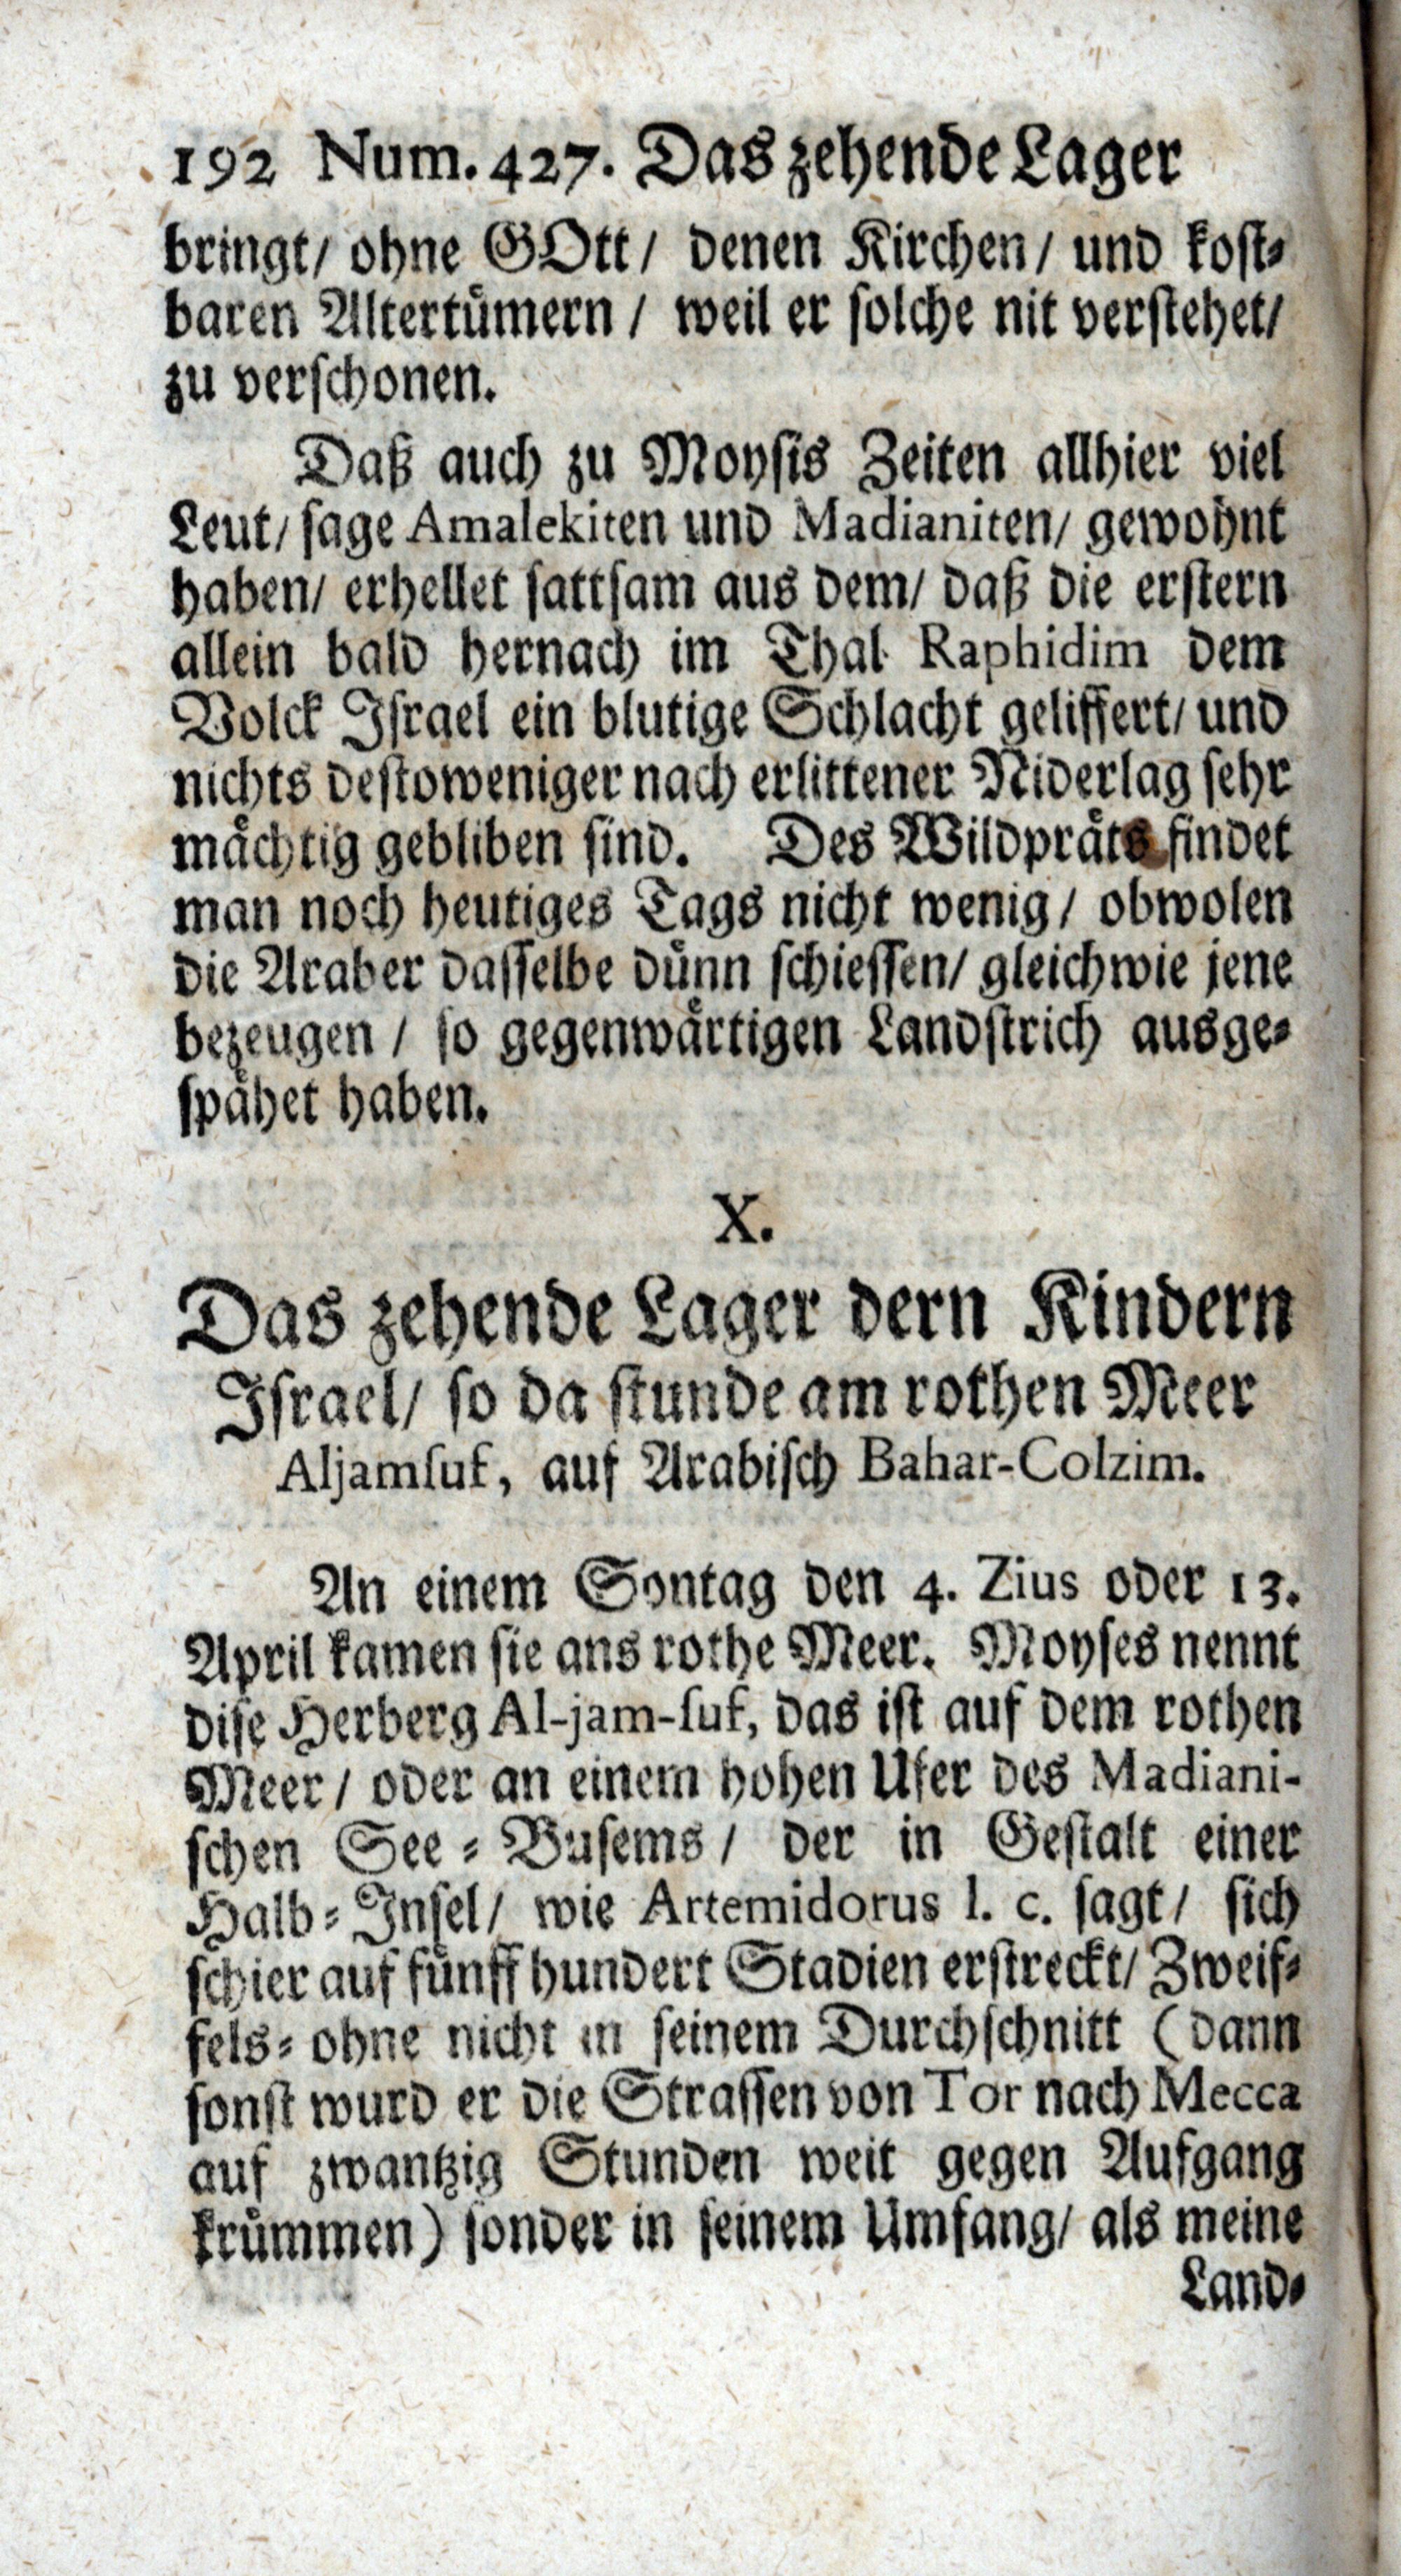 192 Num. 427. Das zehende Lager
bringt/ ohne GOtt/ denen Kirchen/ und kost-
baren Altertümern / weil er solche nit verstehet/
zu verschonen.
Daß auch zu Moysis Zeiten allhier viel
Leut/ sage Amalekiten und Madianiten/ gewohnt
haben/ erhellet sattsam aus dem/ daß die erstern
allein bald hernach im Thal Raphidim dem
Volck Israel ein blutige Schlacht geliffert/ und
nichts destoweniger nach erlittener Niderlag sehr
mächtig gebliben sind. Des Wildpräts findet
man noch heutiges Tags nicht wenig/ obwolen
die Araber dasselbe dünn schiessen/ gleichwie jene
bezeugen / so gegenwärtigen Landstrich ausge-
spähet haben.
X.
Das zehende Lager dern Kindern
Israel/ so da stunde am rothen Meer
Aljamsuf, auf Arabisch Bahar-Colzim.
An einem Sontag den 4. Zius oder 13.
April kamen sie ans rothe Meer. Moyses nennt
dise Herberg Al-jam-suf, das ist auf dem rothen
Meer/ oder an einem hohen Ufer des Madiani-
schen See-Busems/ der in Gestalt einer
Halb-Insel/ wie Artemidorus l. c. sagt/ sich
schier auf fünff hundert Stadien erstreckt/ Zweif-
fels-ohne nicht in seinem Durchschnitt (dann
sonst wurd er die Strassen von Tor nach Mecca
auf zwantzig Stunden weit gegen Aufgang
krümmen) sonder in seinem Umfang/ als meine
Land-